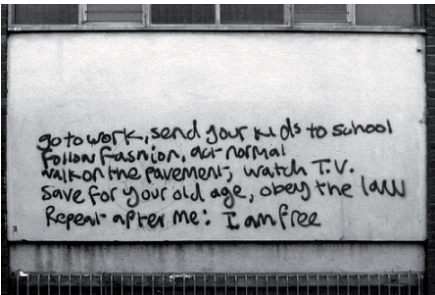 go to work, send your kids to school
follow fashion, act normal
walk on the pavement, watch T.V.
save for your old age, obey the law
Repeat after me: I am free